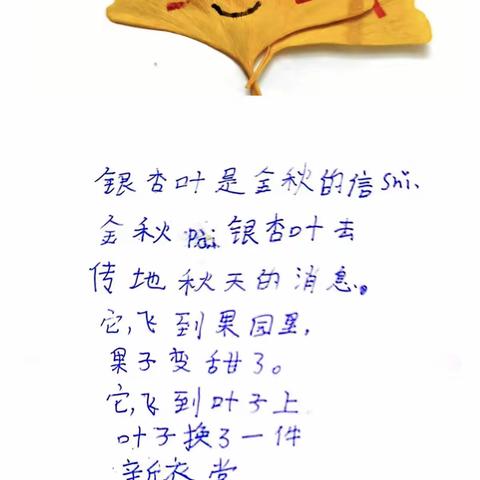 银杏叶是金秋的信shǐ、
金秋pài银杏叶去
传地秋天的消息。
它,飞到果园里,
果子变甜了。
它,飞到叶子上
叶子换了一件
新衣堂